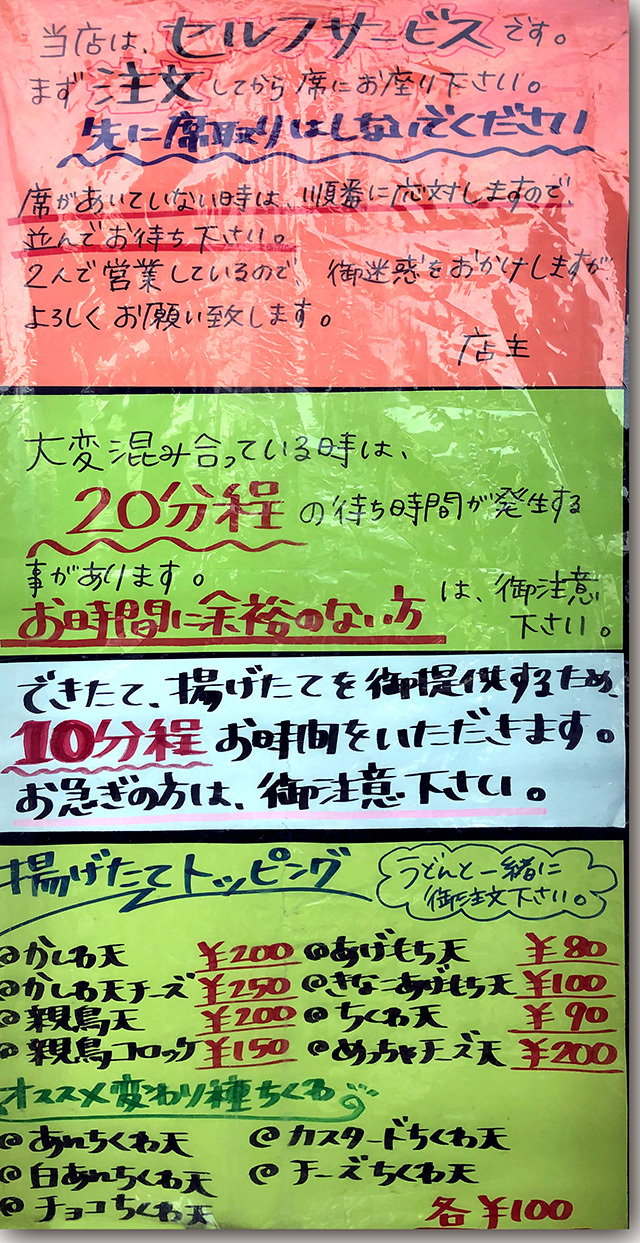 当店は、セルフサービスです。
まず注文してから席にお座り下さい。
先に席取りはしないでください
席があいていない時は、順番に応対しますので、
並んでお待ち下さい。
2人で営業しているので、御迷惑をおかけしますが
よろしくお願い致します。
店主
大変混み合っている時は、
20分程の待ち時間が発生する
事があります。
お時間に余裕のない方は、御注意
下さい。
できたて、揚げたてを御提供するため、
10分程お時間をいただきます。
お急ぎの方は、御注意下さい。
揚げたてトッピング
うどんと一緒に
御注文下さい。
@かしわ天 ¥200 @あげもち天 ¥80
@かしわ天チーズ ¥250 @きなこあげもち天 ¥100
@親鳥天 ¥200 @ちくわ天 ¥90
@親鳥コロッケ ¥150 @めっちゃチーズ天 ¥200
オススメ変わり種ちくわ
@あんちくわ天 @カスタードちくわ天
@白あんちくわ天 @チーズちくわ天
@チョコちくわ天 各¥100